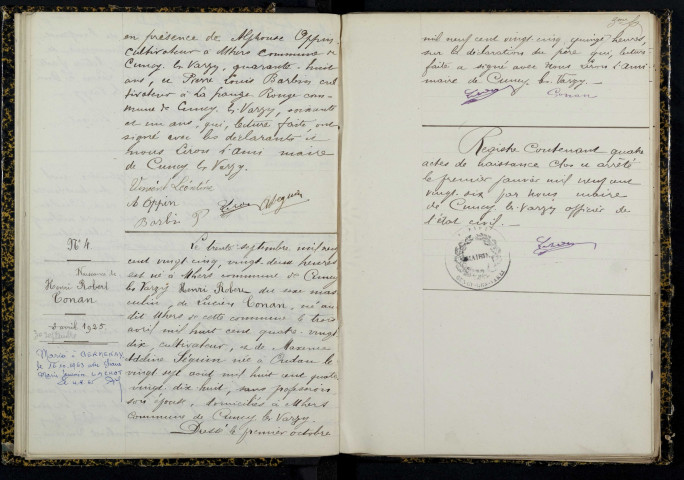 en présence de Alphonse Oppin
cultivateur à Mhers commune de
Cuncy les Varzy, quarante-huit
ans, et Pierre Louis Barbin cul
tivateur à La Grange Rouge com
mune de Cuncy les Varzy, soixante
et un ans, qui, lecture faite, ont
signé avec les déclarants et
nous Liron d'Ami maire
de Cuncy les Varzy.
Vincent Léontine
A Oppin
Barbin P
Liron
N° 4
Naissance de
Henri Robert
Conan
3 avril 1925
30 septembre
Marié à
le 16.10.1943 avec
Le trente septembre mil neuf
cent vingt cinq, vingt-deux heures
est né à Mhers commune de Cuncy
les Varzy Henri Robert du sexe mas
culin, de Lucien Conan, né au
dit Mhers de cette commune le trois
avril mil huit cent quatre-vingt
dix, cultivateur, et de Maxime
Adeline Séguin née à Oudan le
vingt sept août mil huit cent quatre
vingt dix huit, sans profession
son épouse, domiciliés à Mhers
commune de Cuncy les Varzy.
Dressé le premier octobre
mil neuf cent vingt-cinq, quinze heures,
sur la déclaration du père qui, lecture
faite a signé avec Nous Liron d'Ami
maire de Cuncy les Varzy.
Liron
Conan
Registre Contenant quatre
actes de naissance clos et arrêté
le premier janvier mil neuf cent
vingt-six par nous maire
de Cuncy les Varzy officier de
l'état civil.
Liron